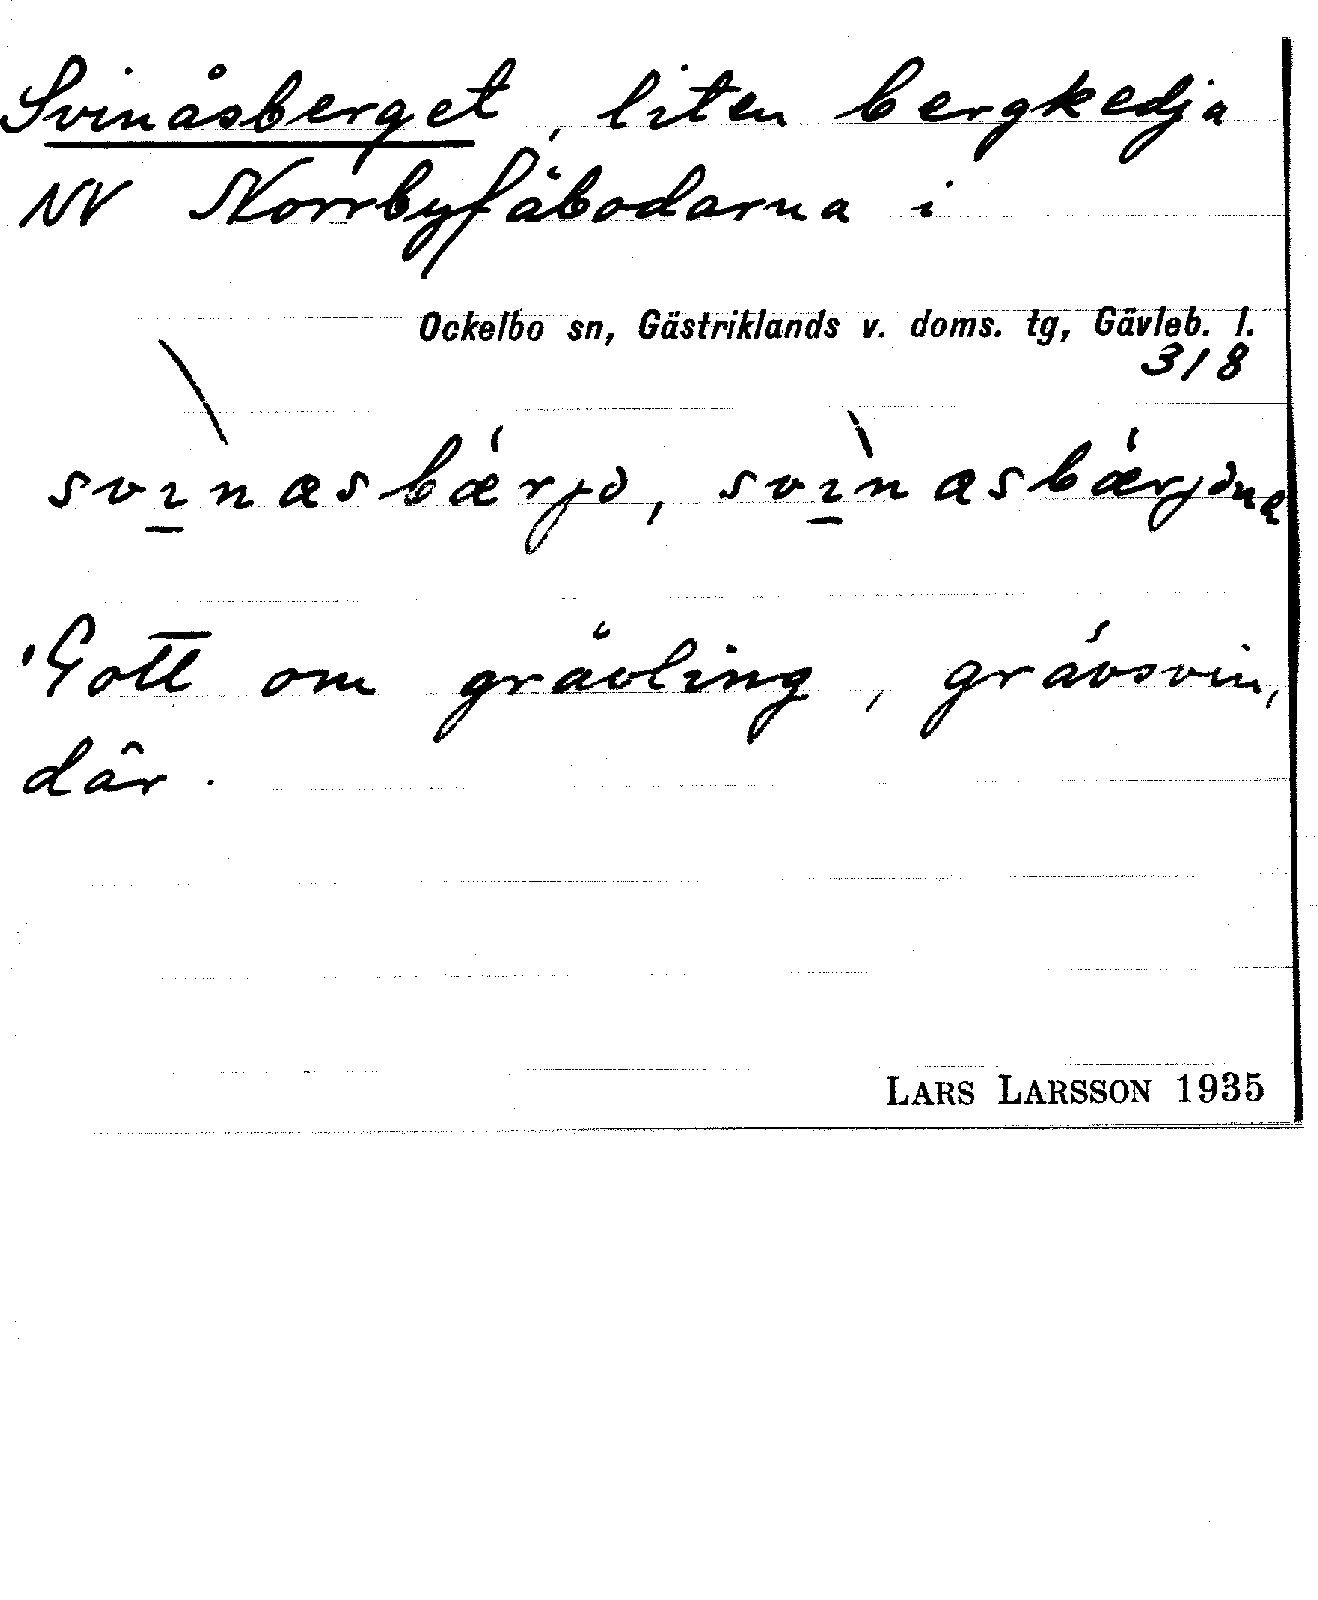 Svinåsberget, liten bergkedja
NV Norrbyfäbodarna i
Ockelbo sn, Gästriklands v. doms. tg, Gävleb. l.
318
svı̲̀nasbǽrjə, svı̲̀nasbǽrjəna
'Gott om grävling, grävsvin,
där.
LARS LARSSON 1935